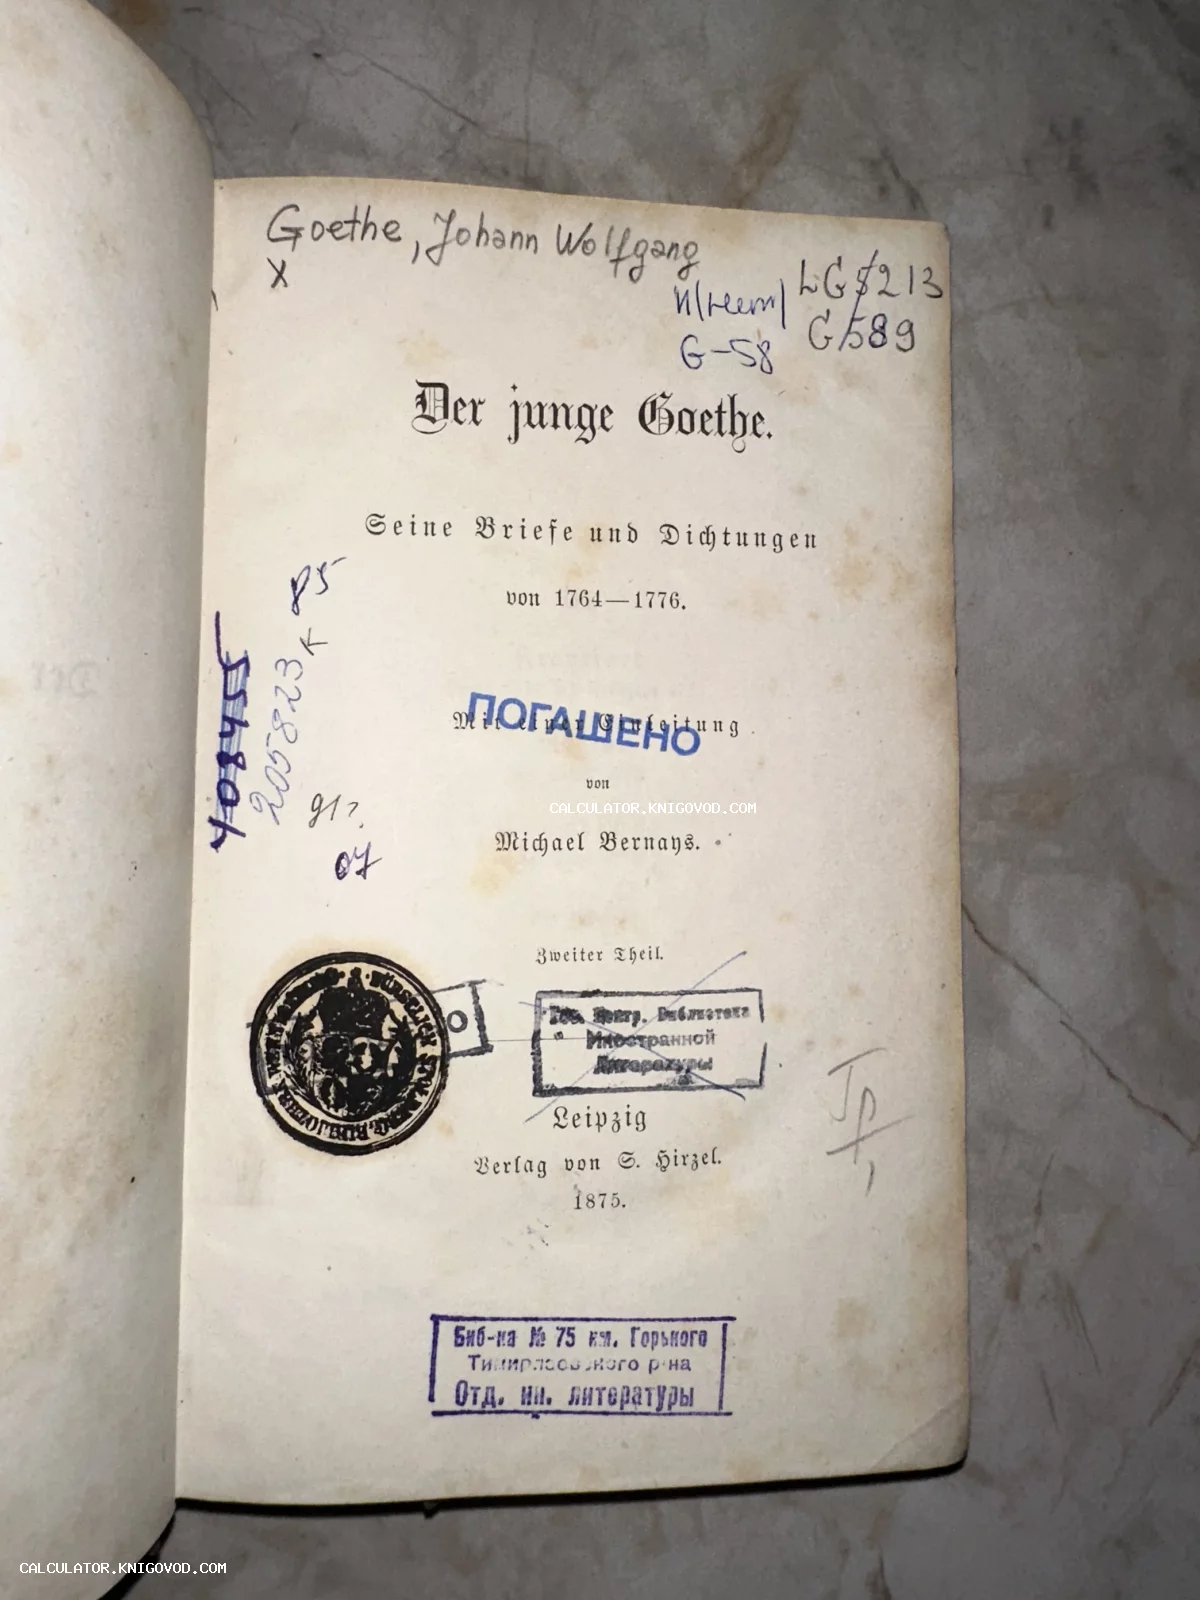 Goethe, Johann Wolfgang
x
LG $213
И(нем)
G589
G-58
Der junge Goethe.
Seine Briefe und Dichtungen
von 1764—1776.
85
K
205823
554804
ПОГАШЕНО
Mit einer Einleitung
von
CALCULATOR.KNIGOVOD.COM
Michael Bernays.
91?
07
Zweiter Theil.
FÜRSTLICH BIBLIOTHEK
Гос. Центр. Библиотека
Иностранной
Литературы
Leipzig
Verlag von S. Hirzel.
1875.
Биб-ка № 75 им. Горького
Тимирязевского р-на
Отд. ин. литературы
CALCULATOR.KNIGOVOD.COM